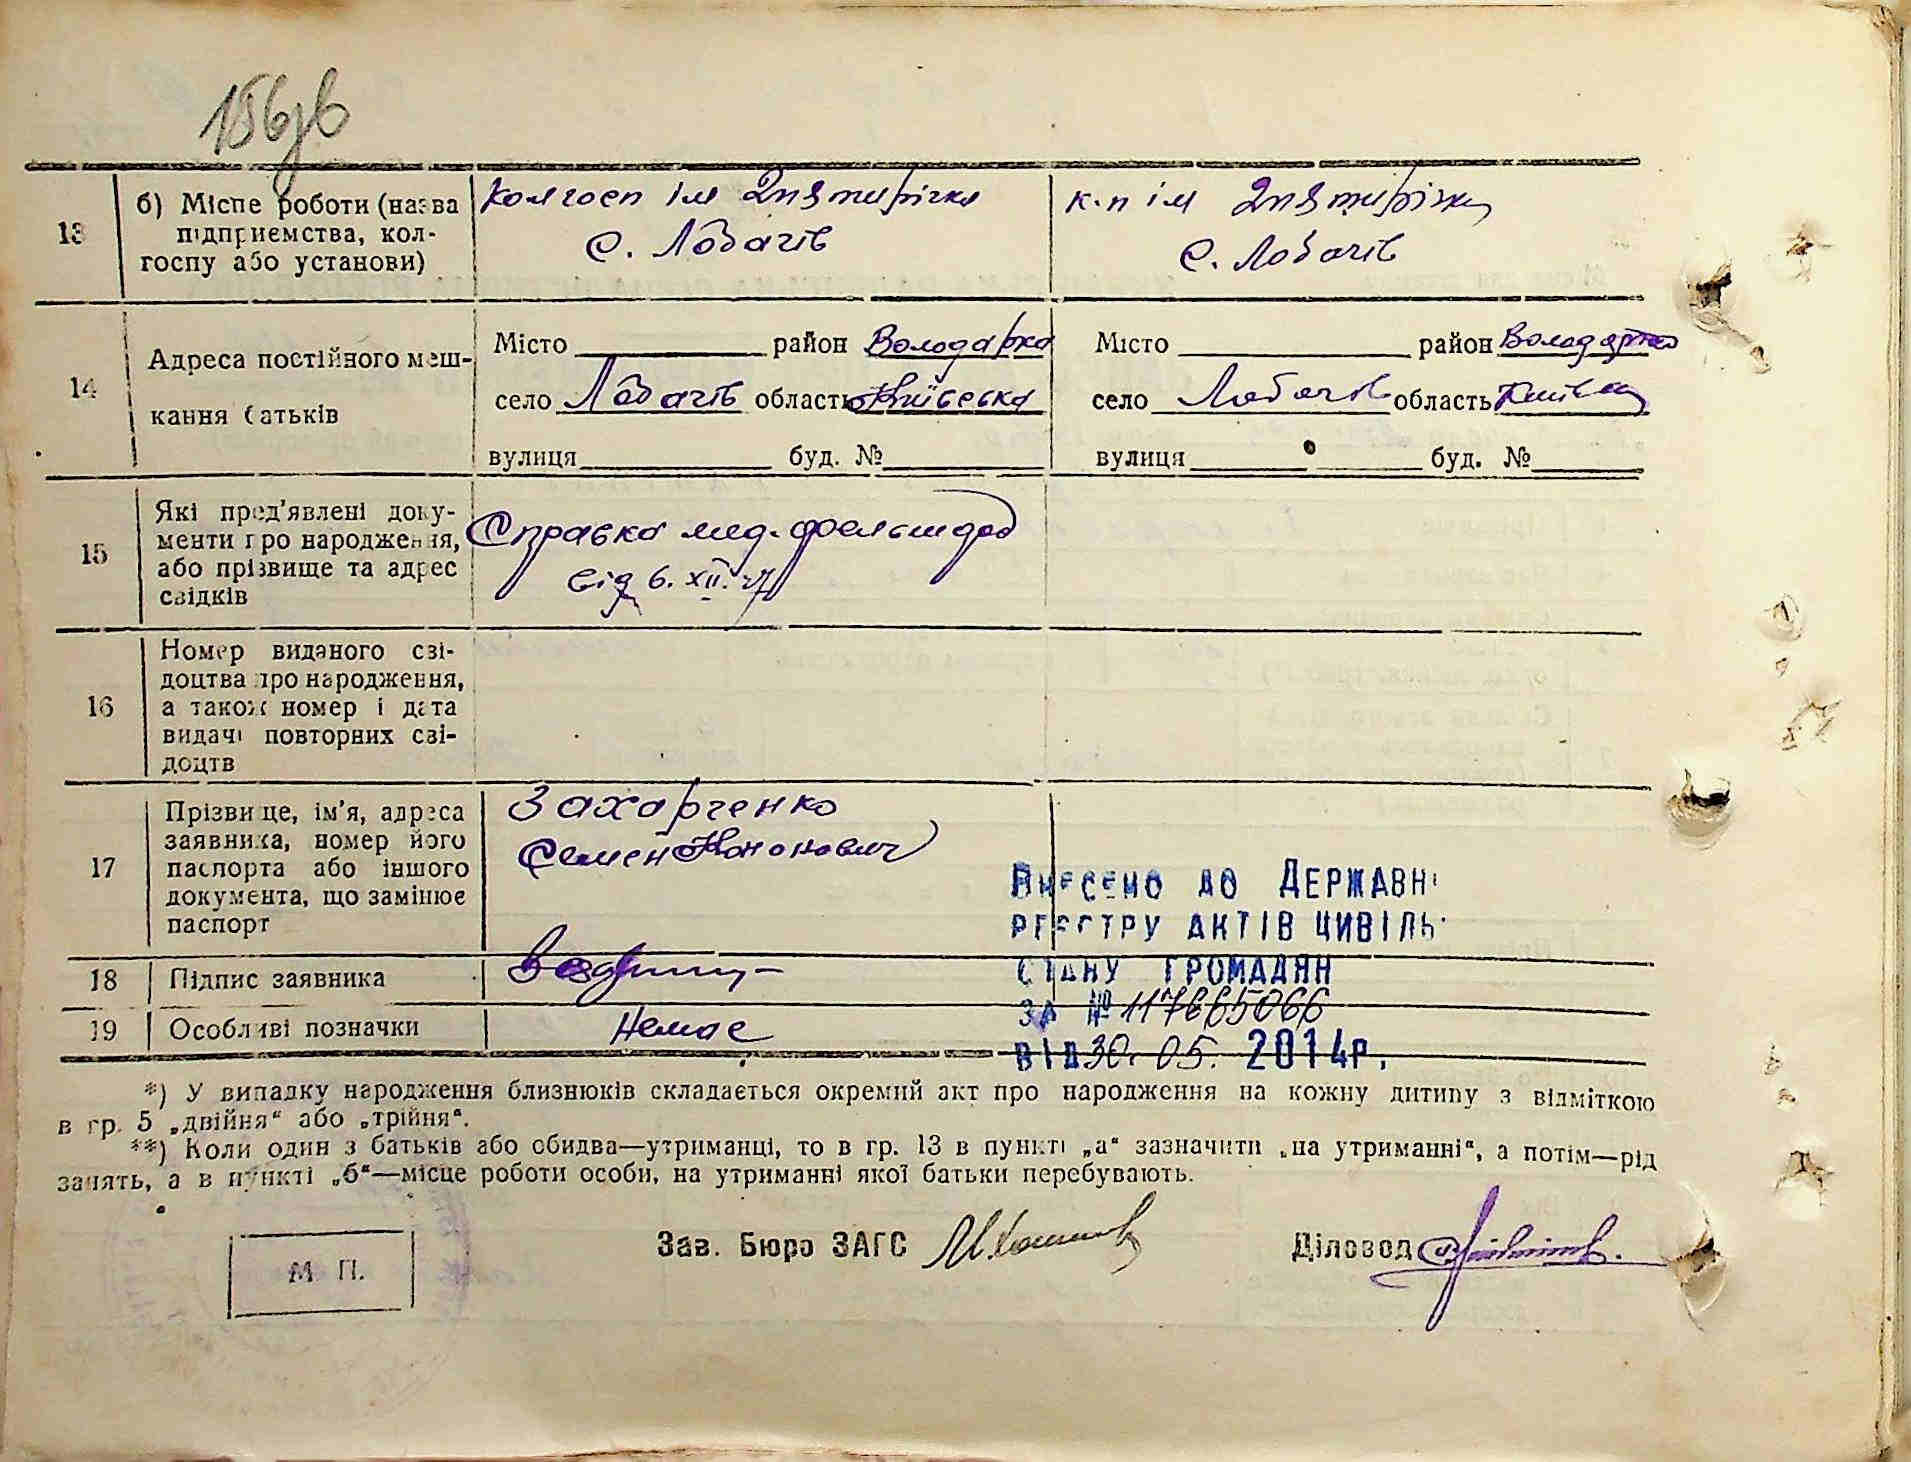 156зв
13 б) Місце роботи (назва підприємства, колгоспу або установи)
Колгосп ім 2 п'ятирічки
с. Лобачів
к-п ім 2 п'ятирічки
с. Лобачів
14 Адреса постійного мешкання батьків
Місто район Володарка
село Лобачів область Київська
вулиця буд. №
Місто район Володарка
село Лобачів область Київська
вулиця буд. №
15 Які пред'явлені документи про народження, або прізвище та адрес свідків
Справка мед. фельшера
від 6. XII. 47
16 Номер виданого свідоцтва про народження, а також номер і дата видачі повторних свідоцтв
17 Прізвище, ім'я, адреса заявника, номер його паспорта або іншого документа, що замінює паспорт
Захарченко
Семен Кононович
18 Підпис заявника
19 Особливі позначки
Немає
Внесено до Державн
реєстру актів цивіль
стану громадян
за №
від 30. 05. 2014р.
*) У випадку народження близнюків складається окремий акт про народження на кожну дитину з відміткою
в гр. 5 „двійня“ або „трійня“.
**) Коли один з батьків або обидва—утриманці, то в гр. 13 в пункті „а“ зазначити „на утриманні“, а потім—рід
занять, а в пункті „б“—місце роботи особи, на утриманні якої батьки перебувають.
М. П.
Зав. Бюро ЗАГС
Діловод